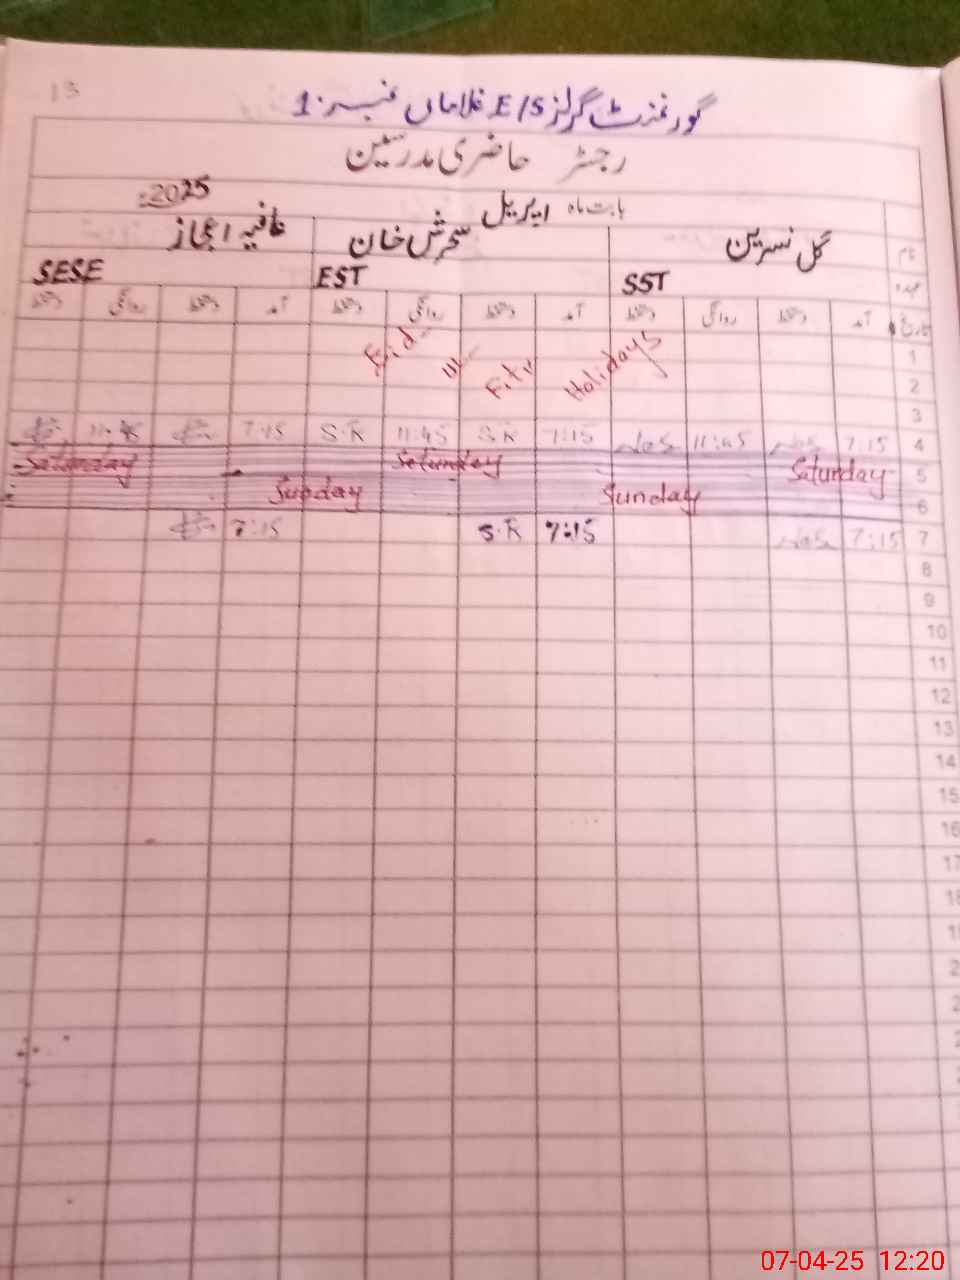 13
گورنمنٹ گرلز E/S غلاماں نمبر 1
رجسٹر حاضری مدرسین
بابت ماہ اپریل 2025ء
نام گل نسرین سحرش خان عافیہ اعجاز
عہدہ SST EST SESE
تاریخ آمد دستخط روانگی دستخط آمد دستخط روانگی دستخط آمد دستخط روانگی دستخط
1 Eid ul Fitr Holidays
2
3
4 7:15 11:45 7:15 S.K 11:45 S.K 7:15 11:45
5 Saturday Saturday Saturday
6 Sunday Sunday
7 7:15 7:15 S.K 7:15
8
9
10
11
12
13
14
15
16
17
18
07-04-25 12:20